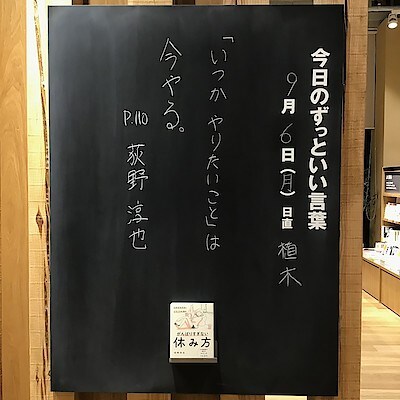 今日のずっといい言葉
9月6日(月)日直 植木
「いつかやりたいこと」は
今やる。
P.110 荻野淳也
がんばりすぎない
休み方